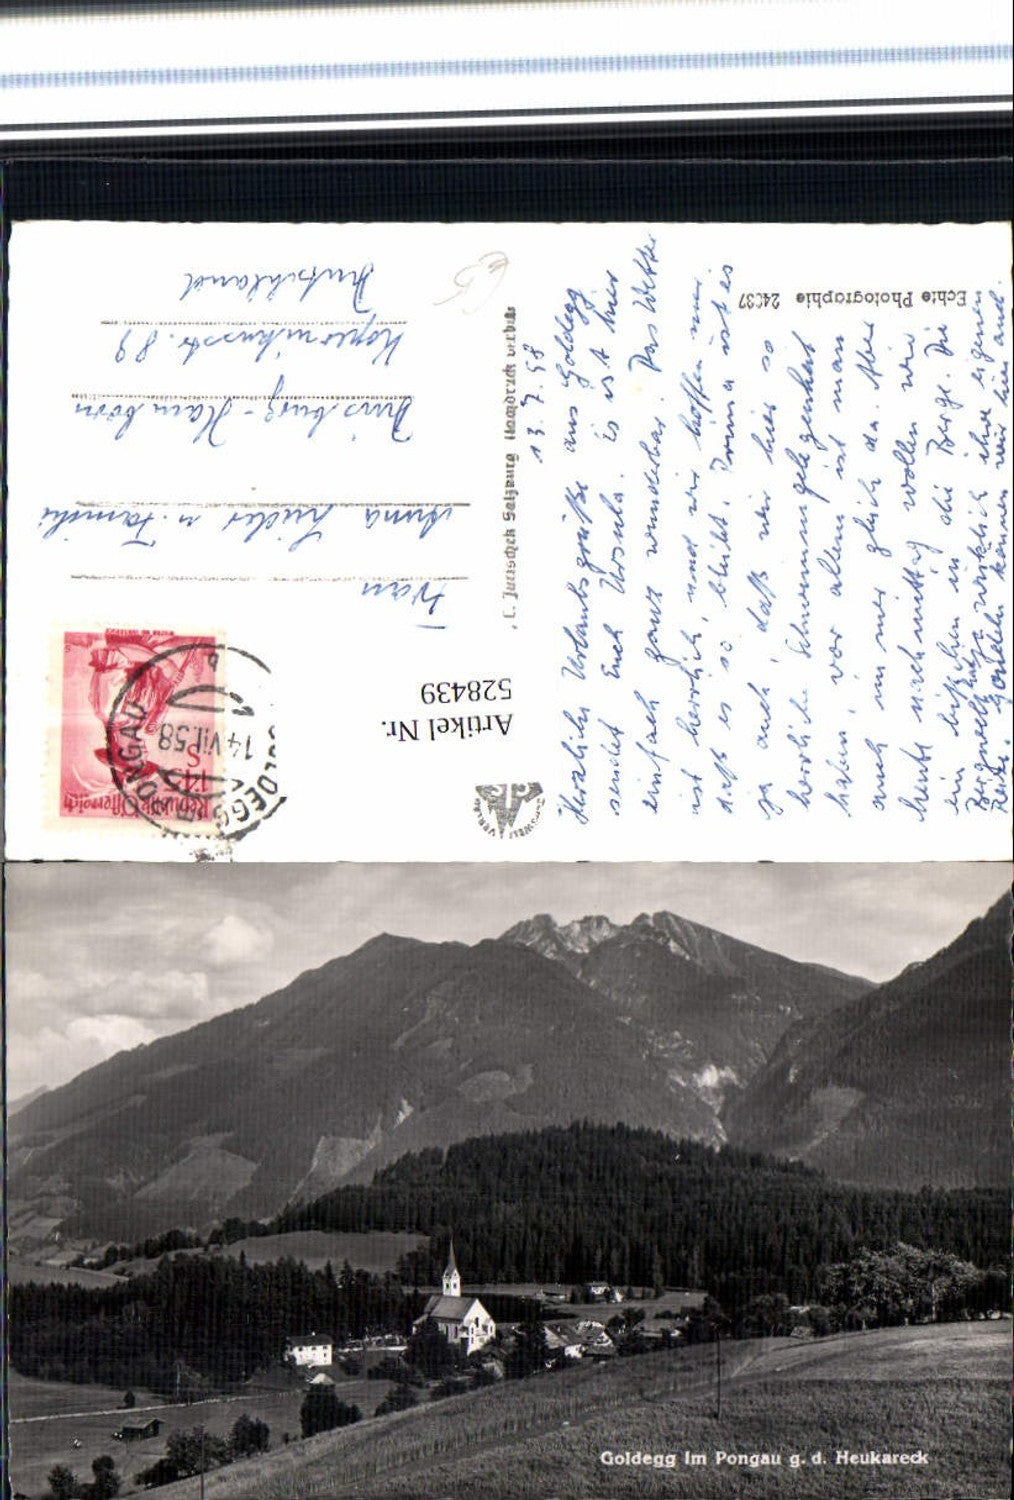 13.7.58
Herzliche Urlaubsgrüße aus Goldegg
sendet Euch Ursula. Es ist hier
einfach ganz wunderbar. Das Wetter
ist herrlich, und wir hoffen nur
daß es so bleibt. Prima ist es
ja auch, daß wir hier so
herrliche Schwimmgelegenheit
haben, vor allem ist man
auch immer gleich da. Aber
heute nachmittag wollen wir
ein bißchen in die Berge. Die
Bergwelt hat wirklich ihre eigenen
Reize. Goldeln können wir hier auch.
Echte Photographie 24037
C. Jurischek Salzburg Nachdruck verbot.
Frau
Anna Lüders u. Familie
Duisburg-Hamborn
Kopernikusstr. 89
Deutschland
Republik Österreich
S 1.45
GOLDEGG IM PONGAU
14.VII.58
Artikel Nr.
528439
Goldegg im Pongau g. d. Heukareck